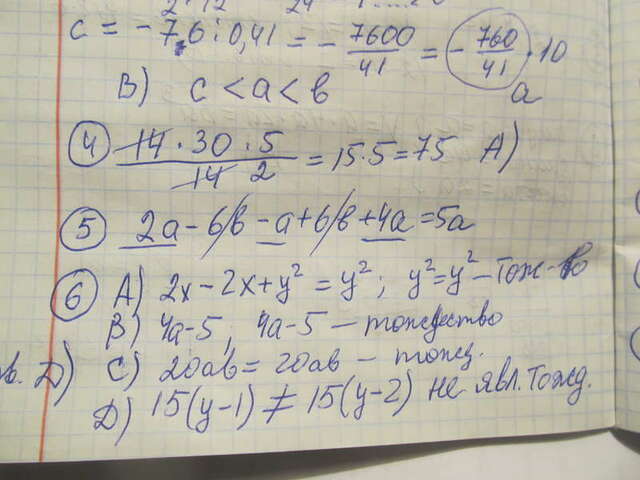 c = - 7,6 : 0,41 = - 7600/41 = - 760/41 · 10
B) c < a < b a
4 14 · 30 · 5 / 14 2 = 15 · 5 = 75 A)
5 2a - 6b - a + 6b + 4a = 5a
6 A) 2x - 2x + y² = y² ; y² = y² - Тож-во
B) 4a-5 ; 4a-5 - тождество
D) C) 20ab = 20ab - тожд.
D) 15(y-1) ≠ 15(y-2) не явл. Тожд.